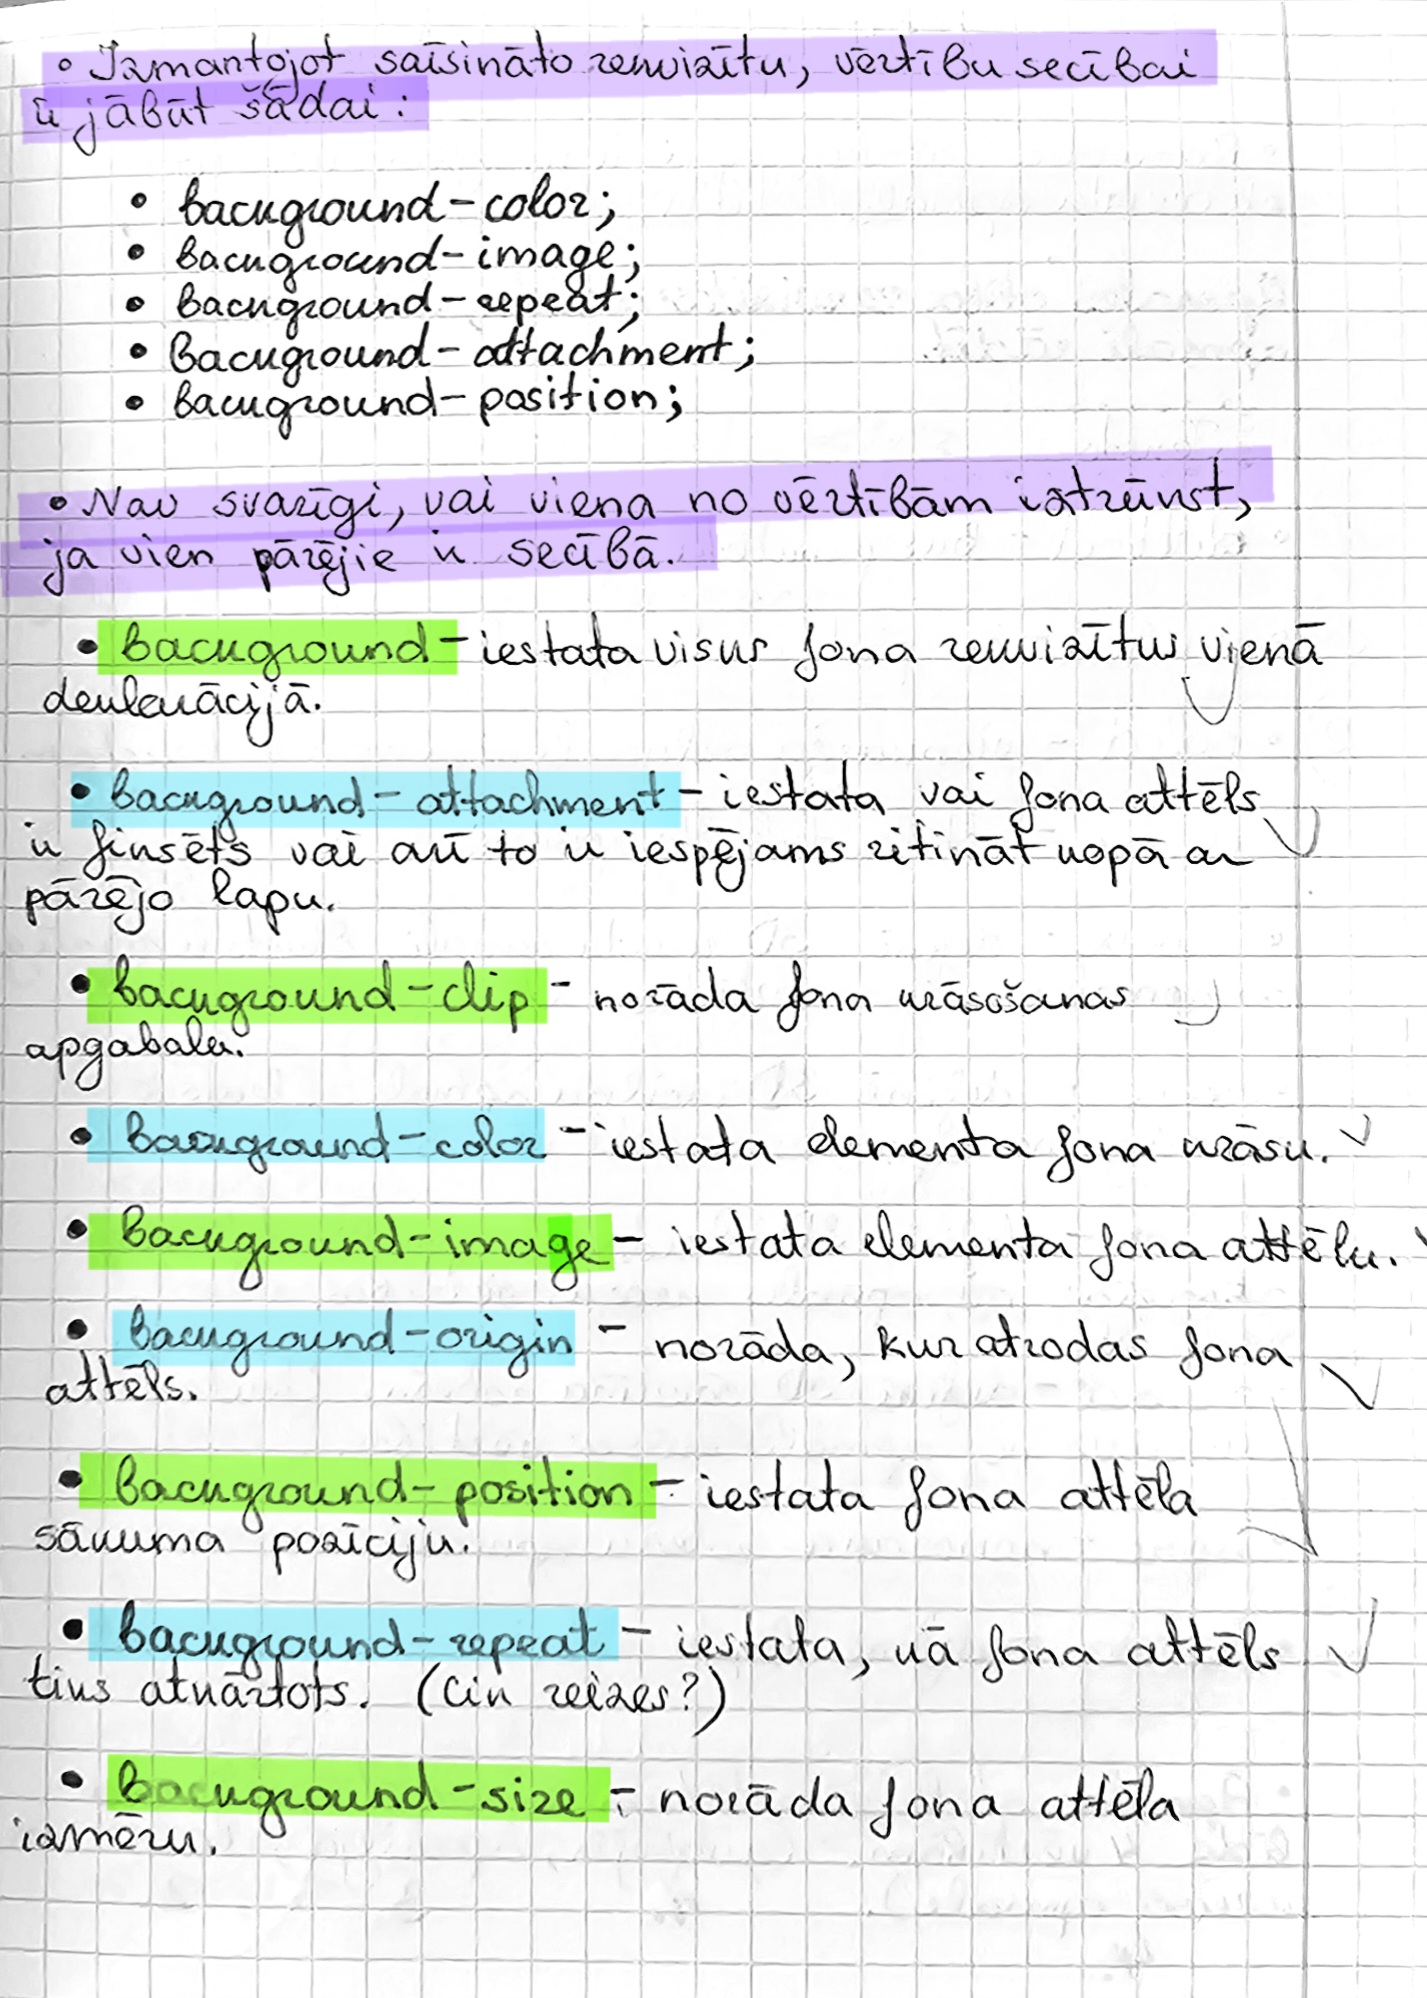 • Izmantojot saīsināto rekvizītu, vērtību secībai
ir jābūt šādai:
• background-color;
• background-image;
• background-repeat;
• background-attachment;
• background-position;
• Nav svarīgi, vai viena no vērtībām iztrūkst,
ja vien pārējie ir secībā.
• background - iestata visus fona rekvizītus vienā
deklarācijā.
• background-attachment - iestata vai fona attēls
ir fiksēts vai arī to ir iespējams ritināt kopā ar
pārējo lapu.
• background-clip - norāda fona krāsošanas
apgabalu.
• background-color - iestata elementa fona krāsu.
• background-image - iestata elementa fona attēlu.
• background-origin - norāda, kur atrodas fona
attēls.
• background-position - iestata fona attēla
sākuma pozīciju.
• background-repeat - iestata, kā fona attēls
tiks atkārtots. (Cik reizes?)
• background-size - norāda fona attēla
izmēru.